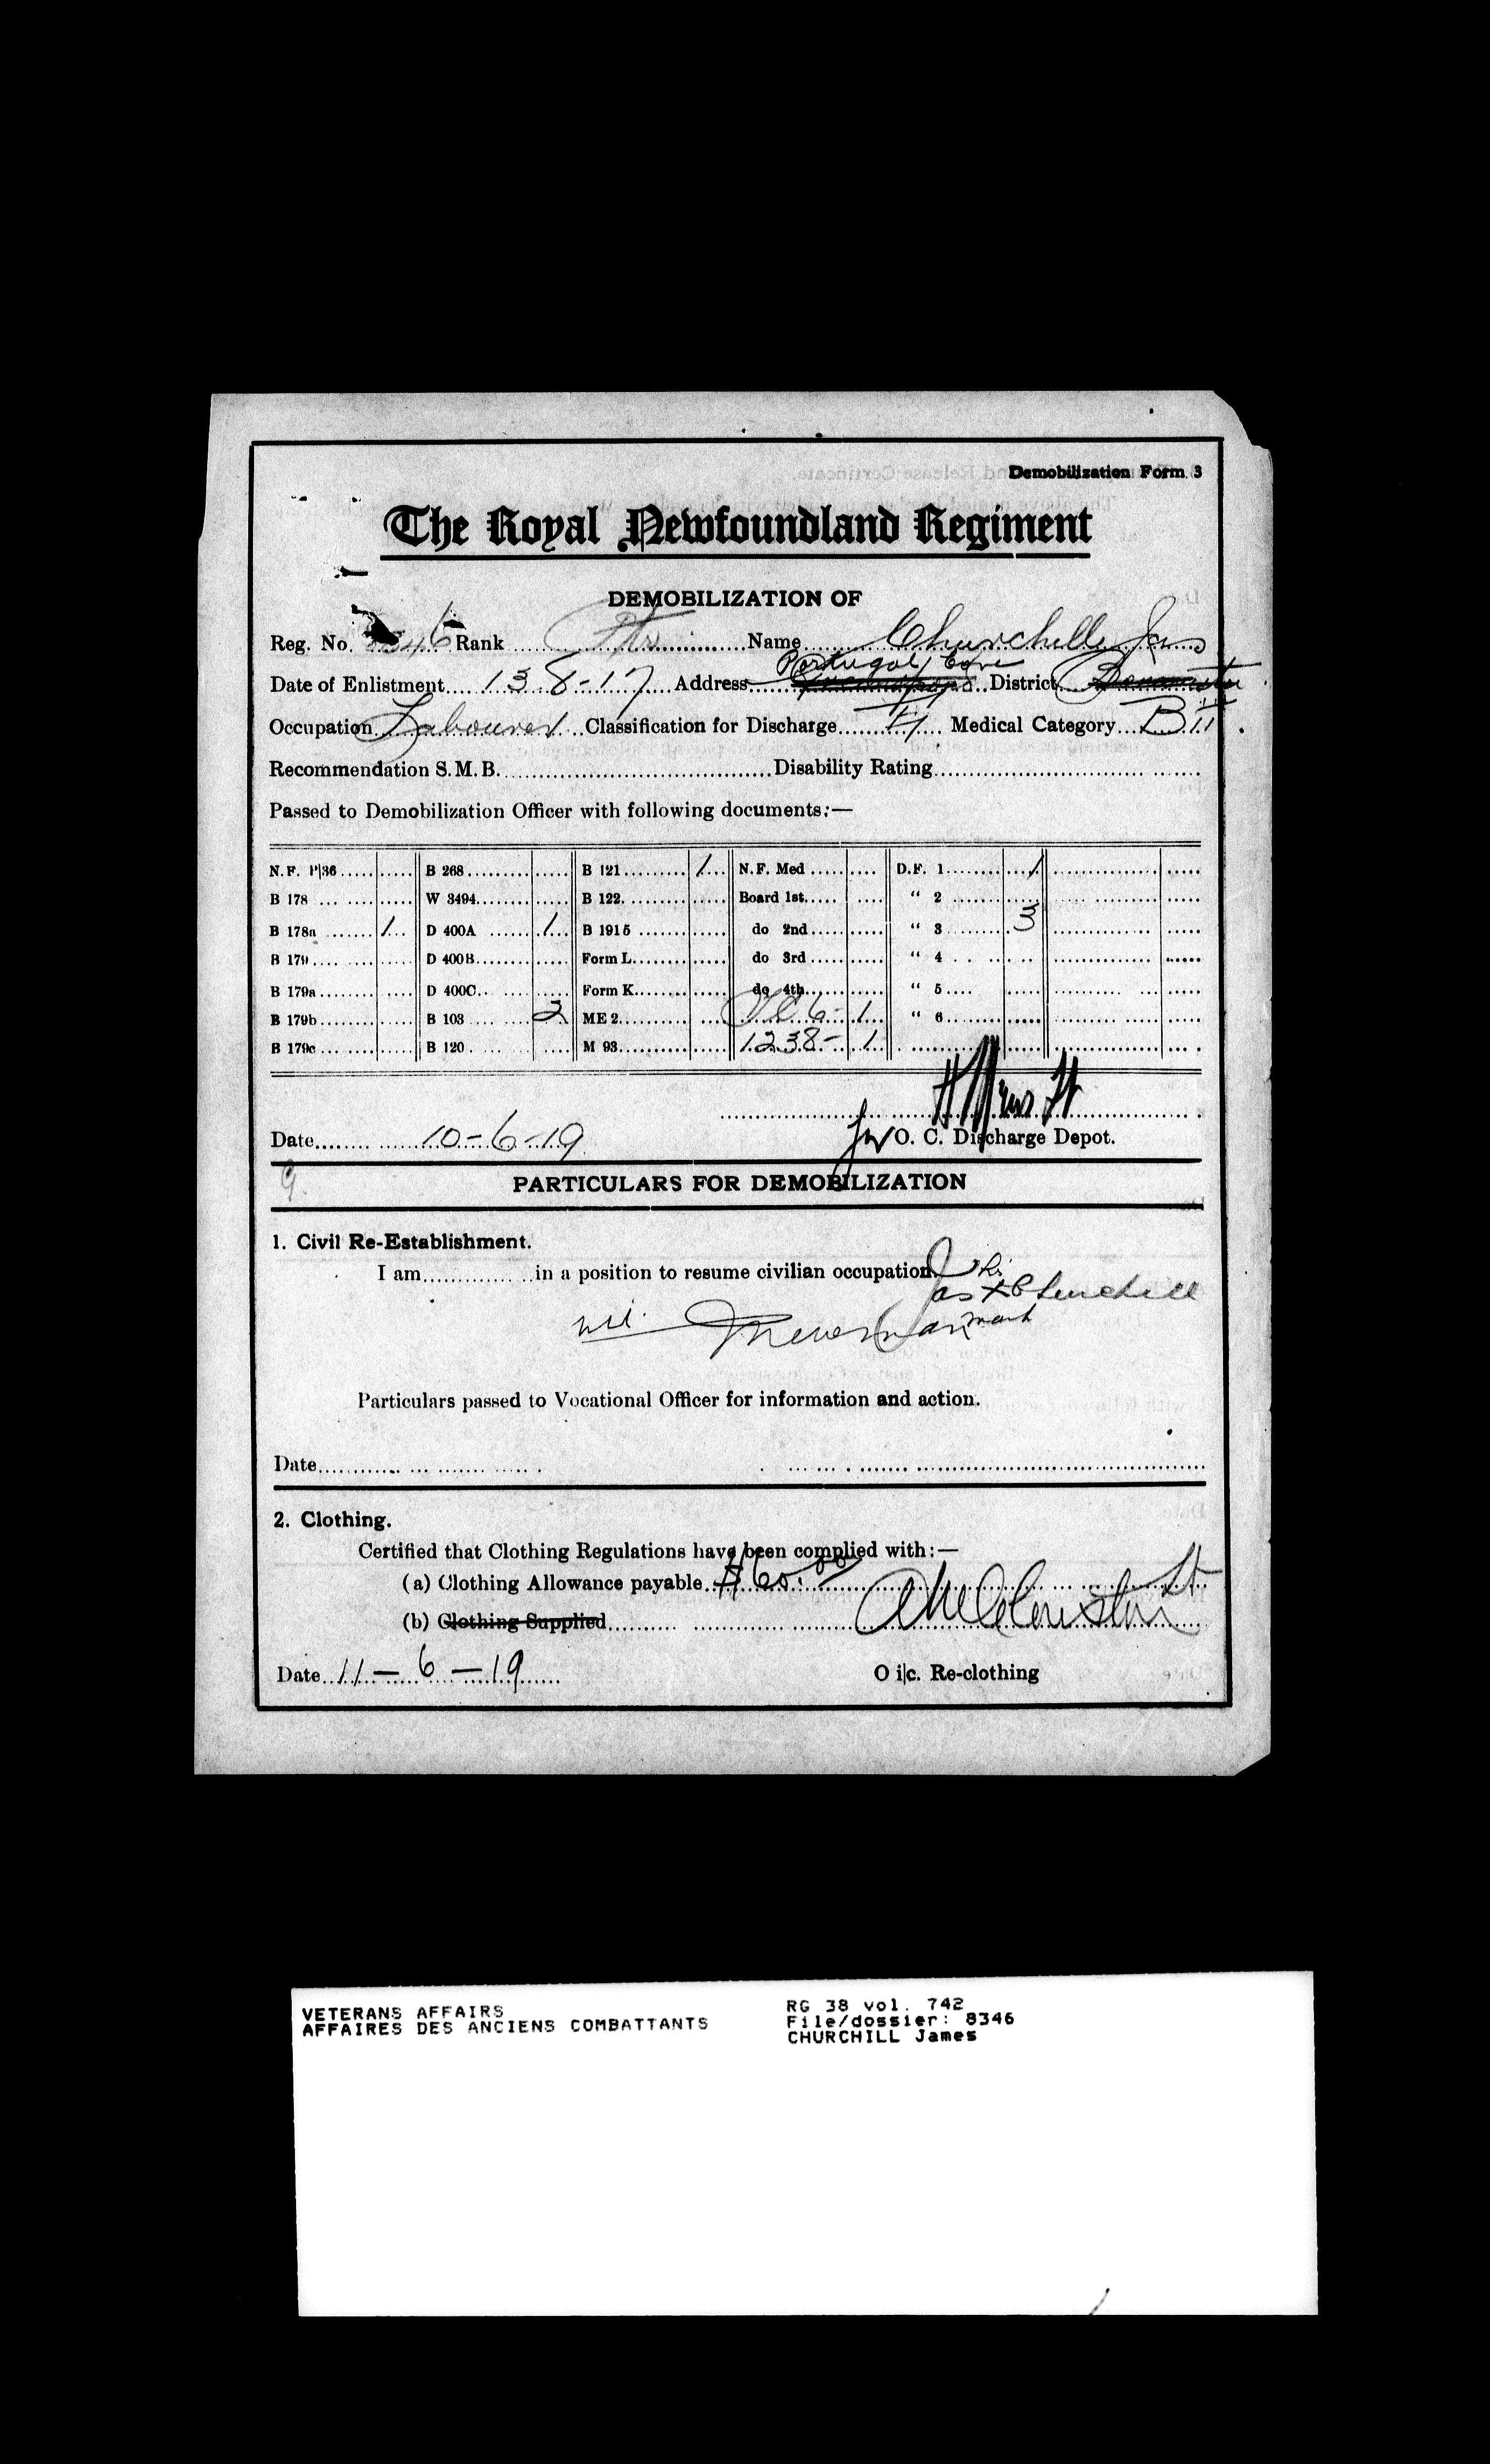 Demobilization Form 3
The Royal Newfoundland Regiment
DEMOBILIZATION OF
Reg. No. 8346 Rank Pte Name Churchill Jas
Portugal Cove
Date of Enlistment 13-8-17 Address District
Occupation Labourer Classification for Discharge Medical Category B II
Recommendation S.M.B. Disability Rating
Passed to Demobilization Officer with following documents:—
N.F. P|36 B 268 B 121 1 N.F. Med D.F. 1 1
B 178 W 3494 B 122 Board 1st " 2
B 178a 1 D 400A 1 B 1915 do 2nd " 3 3
B 179 D 400B Form L do 3rd " 4
B 179a D 400C Form K do 4th " 5
B 179b B 103 2 ME 2 1 " 6
B 179c B 120 M 93 1238- 1
Date 10-6-19 for O. C. Discharge Depot.
9
PARTICULARS FOR DEMOBILIZATION
1. Civil Re-Establishment.
I am in a position to resume civilian occupation.
his
Jas X Churchill
mark
Particulars passed to Vocational Officer for information and action.
Date
2. Clothing.
Certified that Clothing Regulations have been complied with:—
(a) Clothing Allowance payable $60.00
(b) Clothing Supplied
Date 11-6-19 O i|c. Re-clothing
VETERANS AFFAIRS RG 38 vol. 742
AFFAIRES DES ANCIENS COMBATTANTS File/dossier: 8346
CHURCHILL James